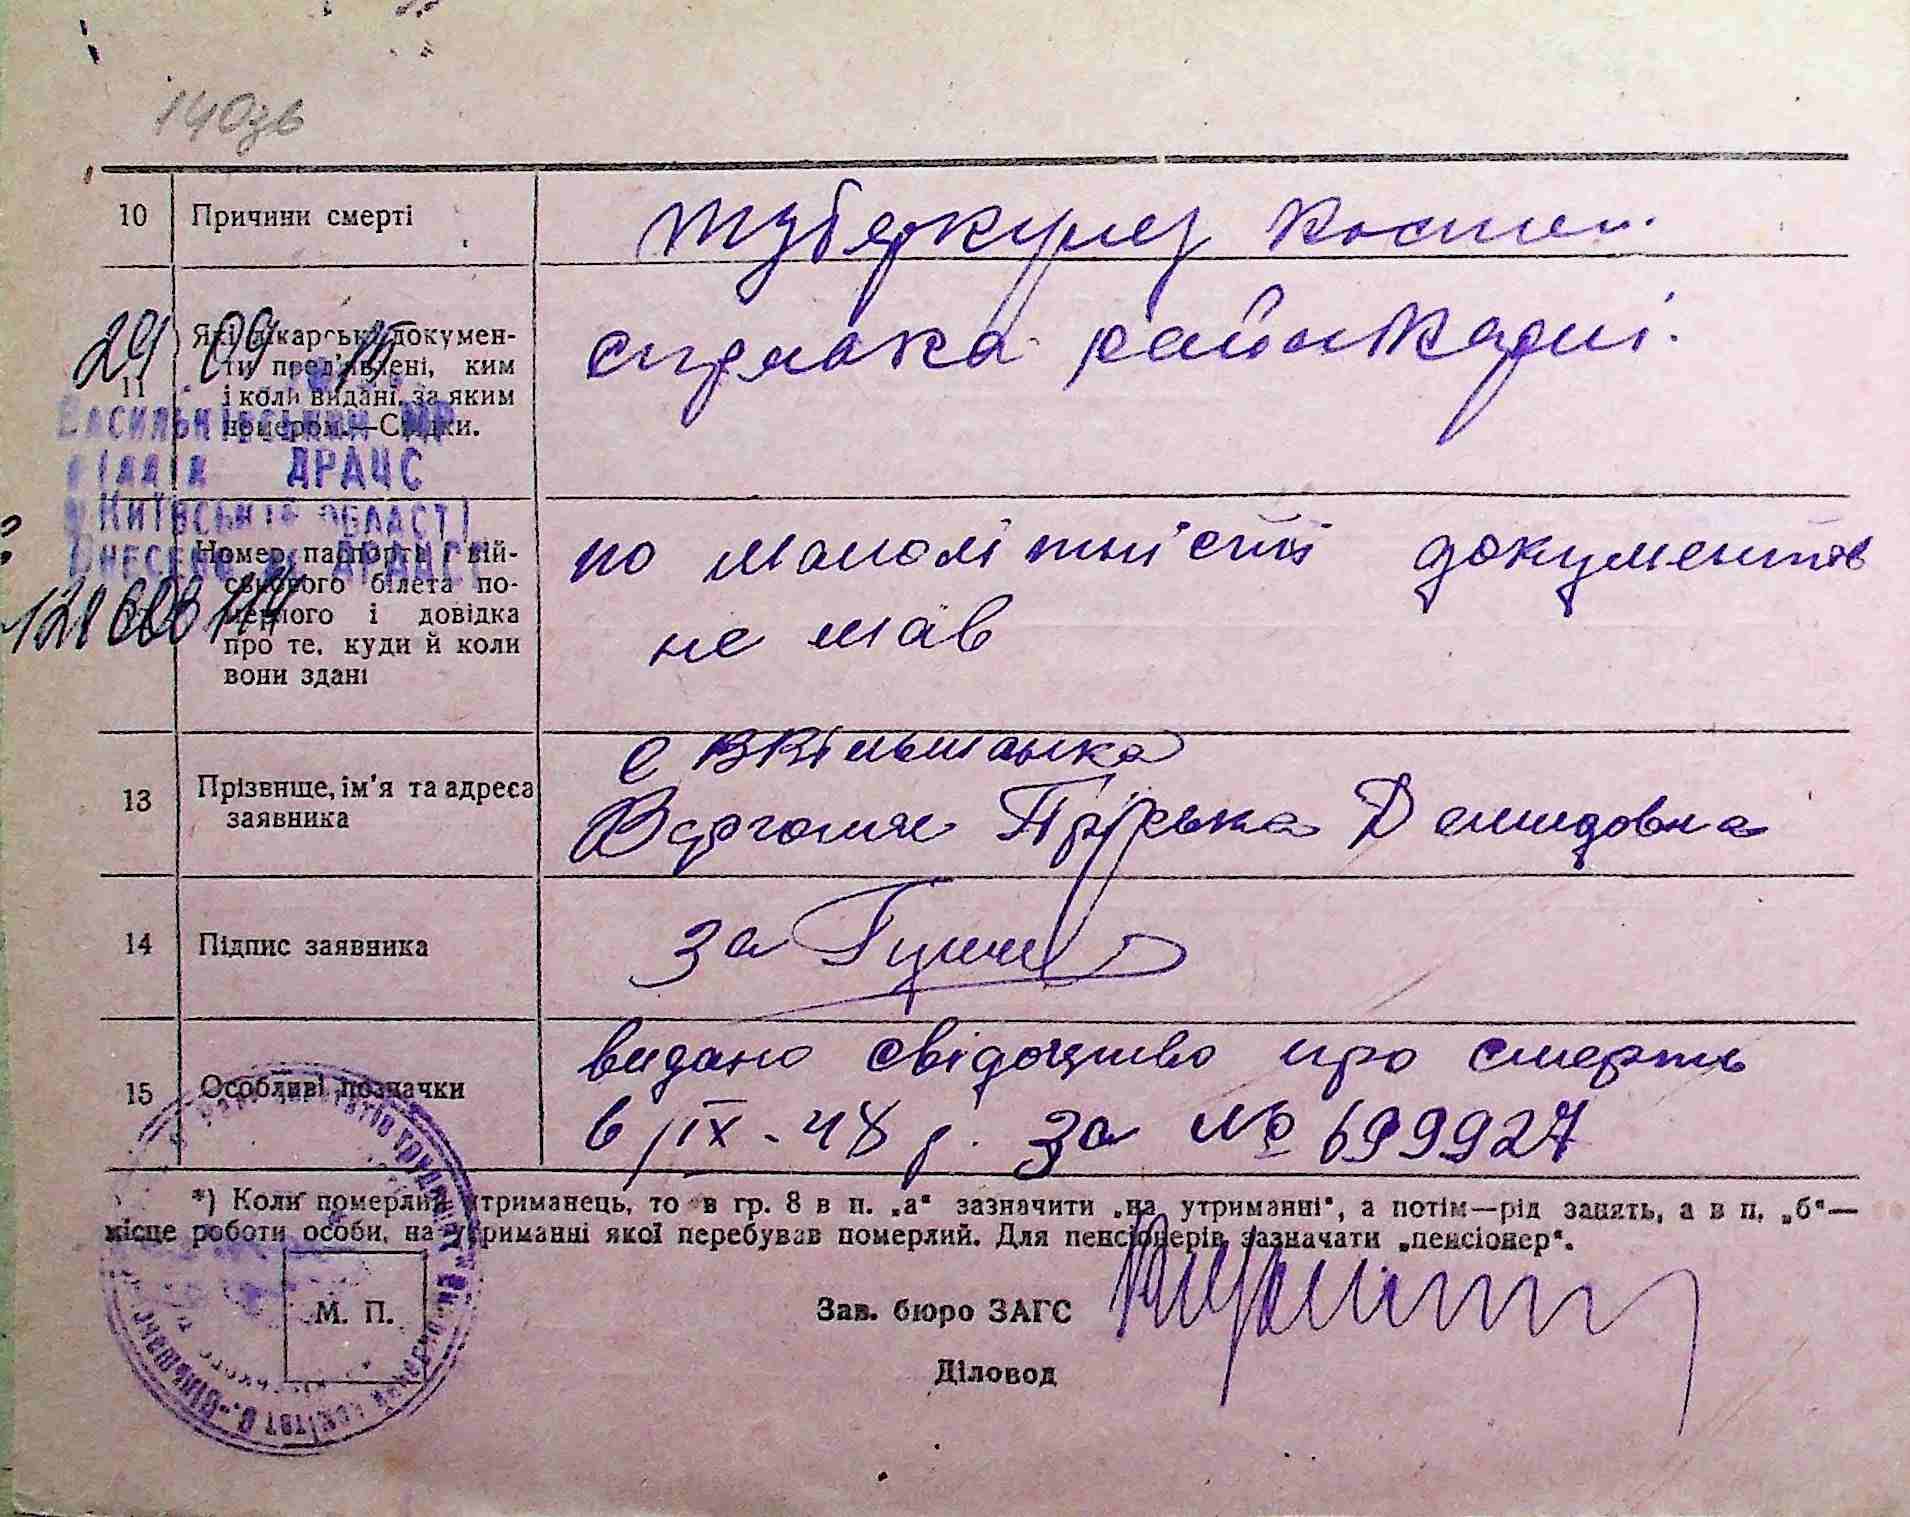 140зв
10 Причини смерті
туберкулез костей.
11 Які лікарські докумен-
ти пред'явлені, ким
і коли видані, за яким
номером.—Свідки.
справка
29 09 15
Васильківський МР
відділ ДРАЦС
Київській області
Внесено в ДРАЦС
Номер паспорта і вій-
ськового білета по-
мерлого і довідка
про те, куди й коли
вони здані
по малолітності документів
не мав
13 Прізвище, ім'я та адреса
заявника
с ВВільшанка
Пріська Демидовна
14 Підпис заявника
за
15 Особливі позначки
видано свідоцтво про смерть
6/IX-48 р. за № 699927
*) Коли померлий утриманець, то в гр. 8 в п. „а“ зазначити „на утриманні“, а потім—рід занять, а в п. „б“—
місце роботи особи, на утриманні якої перебував померлий. Для пенсіонерів зазначати „пенсіонер“.
М. П.
Зав. бюро ЗАГС
Діловод